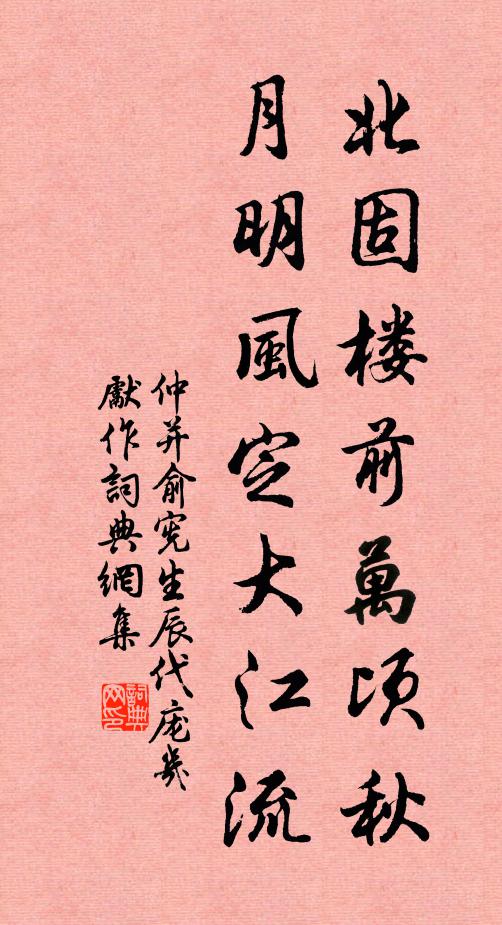 北固楼前萬頃秋
月明風定大江流
仲并俞宪生辰代庞幾
獻作詞典網集
詞典网印